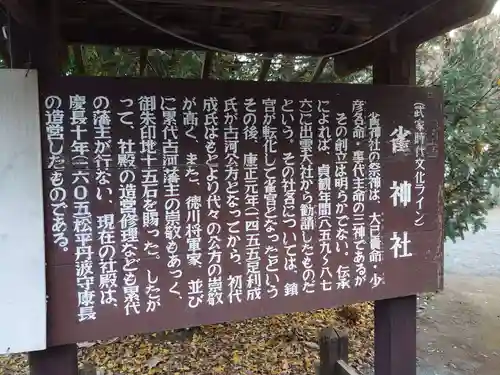 (武家時代文化ライン)
雀神社
雀神社の祭神は、大己貴命・少
彦名命・事代主命の三神であるが
その創立は明らかでない。伝承
によれば、貞観年間(八五九〜八七
六)に出雲大社から勧請したものだ
という。その社名については、鎮
宮が転化して雀宮となったという
その後、康正元年(一四五五)足利成
氏が古河公方となってから、初代
成氏はもとより代々の公方の崇敬
が高く、また、徳川将軍家、並び
に累代古河藩主の崇敬もあつく、
御朱印地十五石を賜った。したが
って、社殿の造営修理なども累代
の藩主が行ない、現在の社殿は、
慶長十年(一六〇五)松平丹波守康長
の造営したものである。